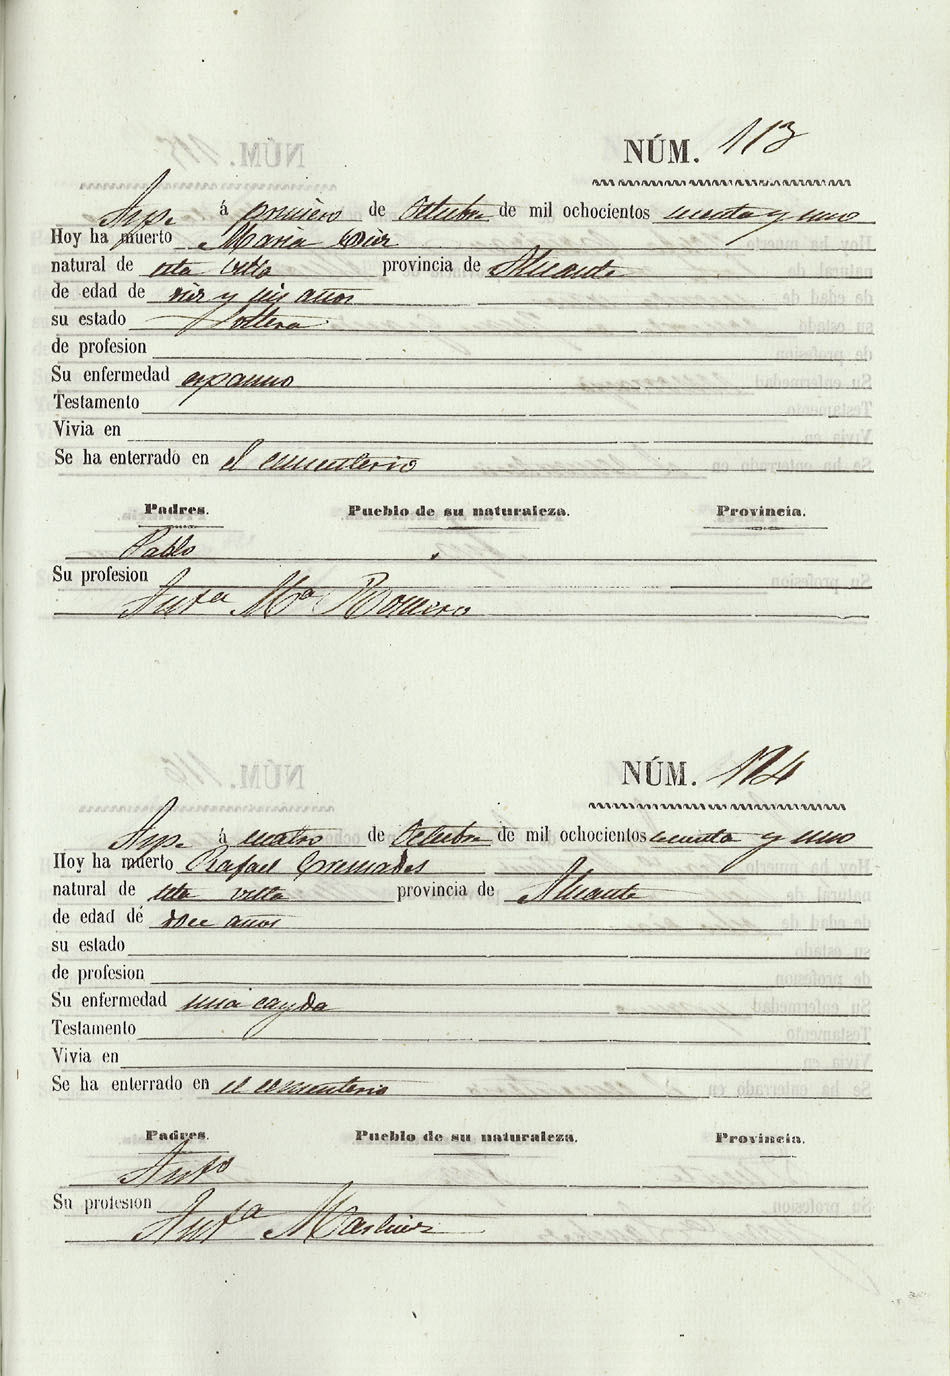 NÚM. 113
Aspe á primero de Octubre de mil ochocientos cuenta y uno
Hoy ha muerto Maria Diez
natural de esta villa provincia de Alicante
de edad de diez y seis años
su estado Soltera
de profesion
Su enfermedad espasmo
Testamento
Vivia en
Se ha enterrado en el cementerio
Padres. Pueblo de su naturaleza. Provincia.
Pablo
Su profesion
Antª Mª Romero
NÚM. 114
Aspe á cuatro de Octubre de mil ochocientos cuenta y uno
Hoy ha muerto Rafael Cremades
natural de esta villa provincia de Alicante
de edad dé doce años
su estado
de profesion
Su enfermedad una cayda
Testamento
Vivia en
Se ha enterrado en el cementerio
Padres. Pueblo de su naturaleza. Provincia.
Antº
Su profesion
Antª Martinez